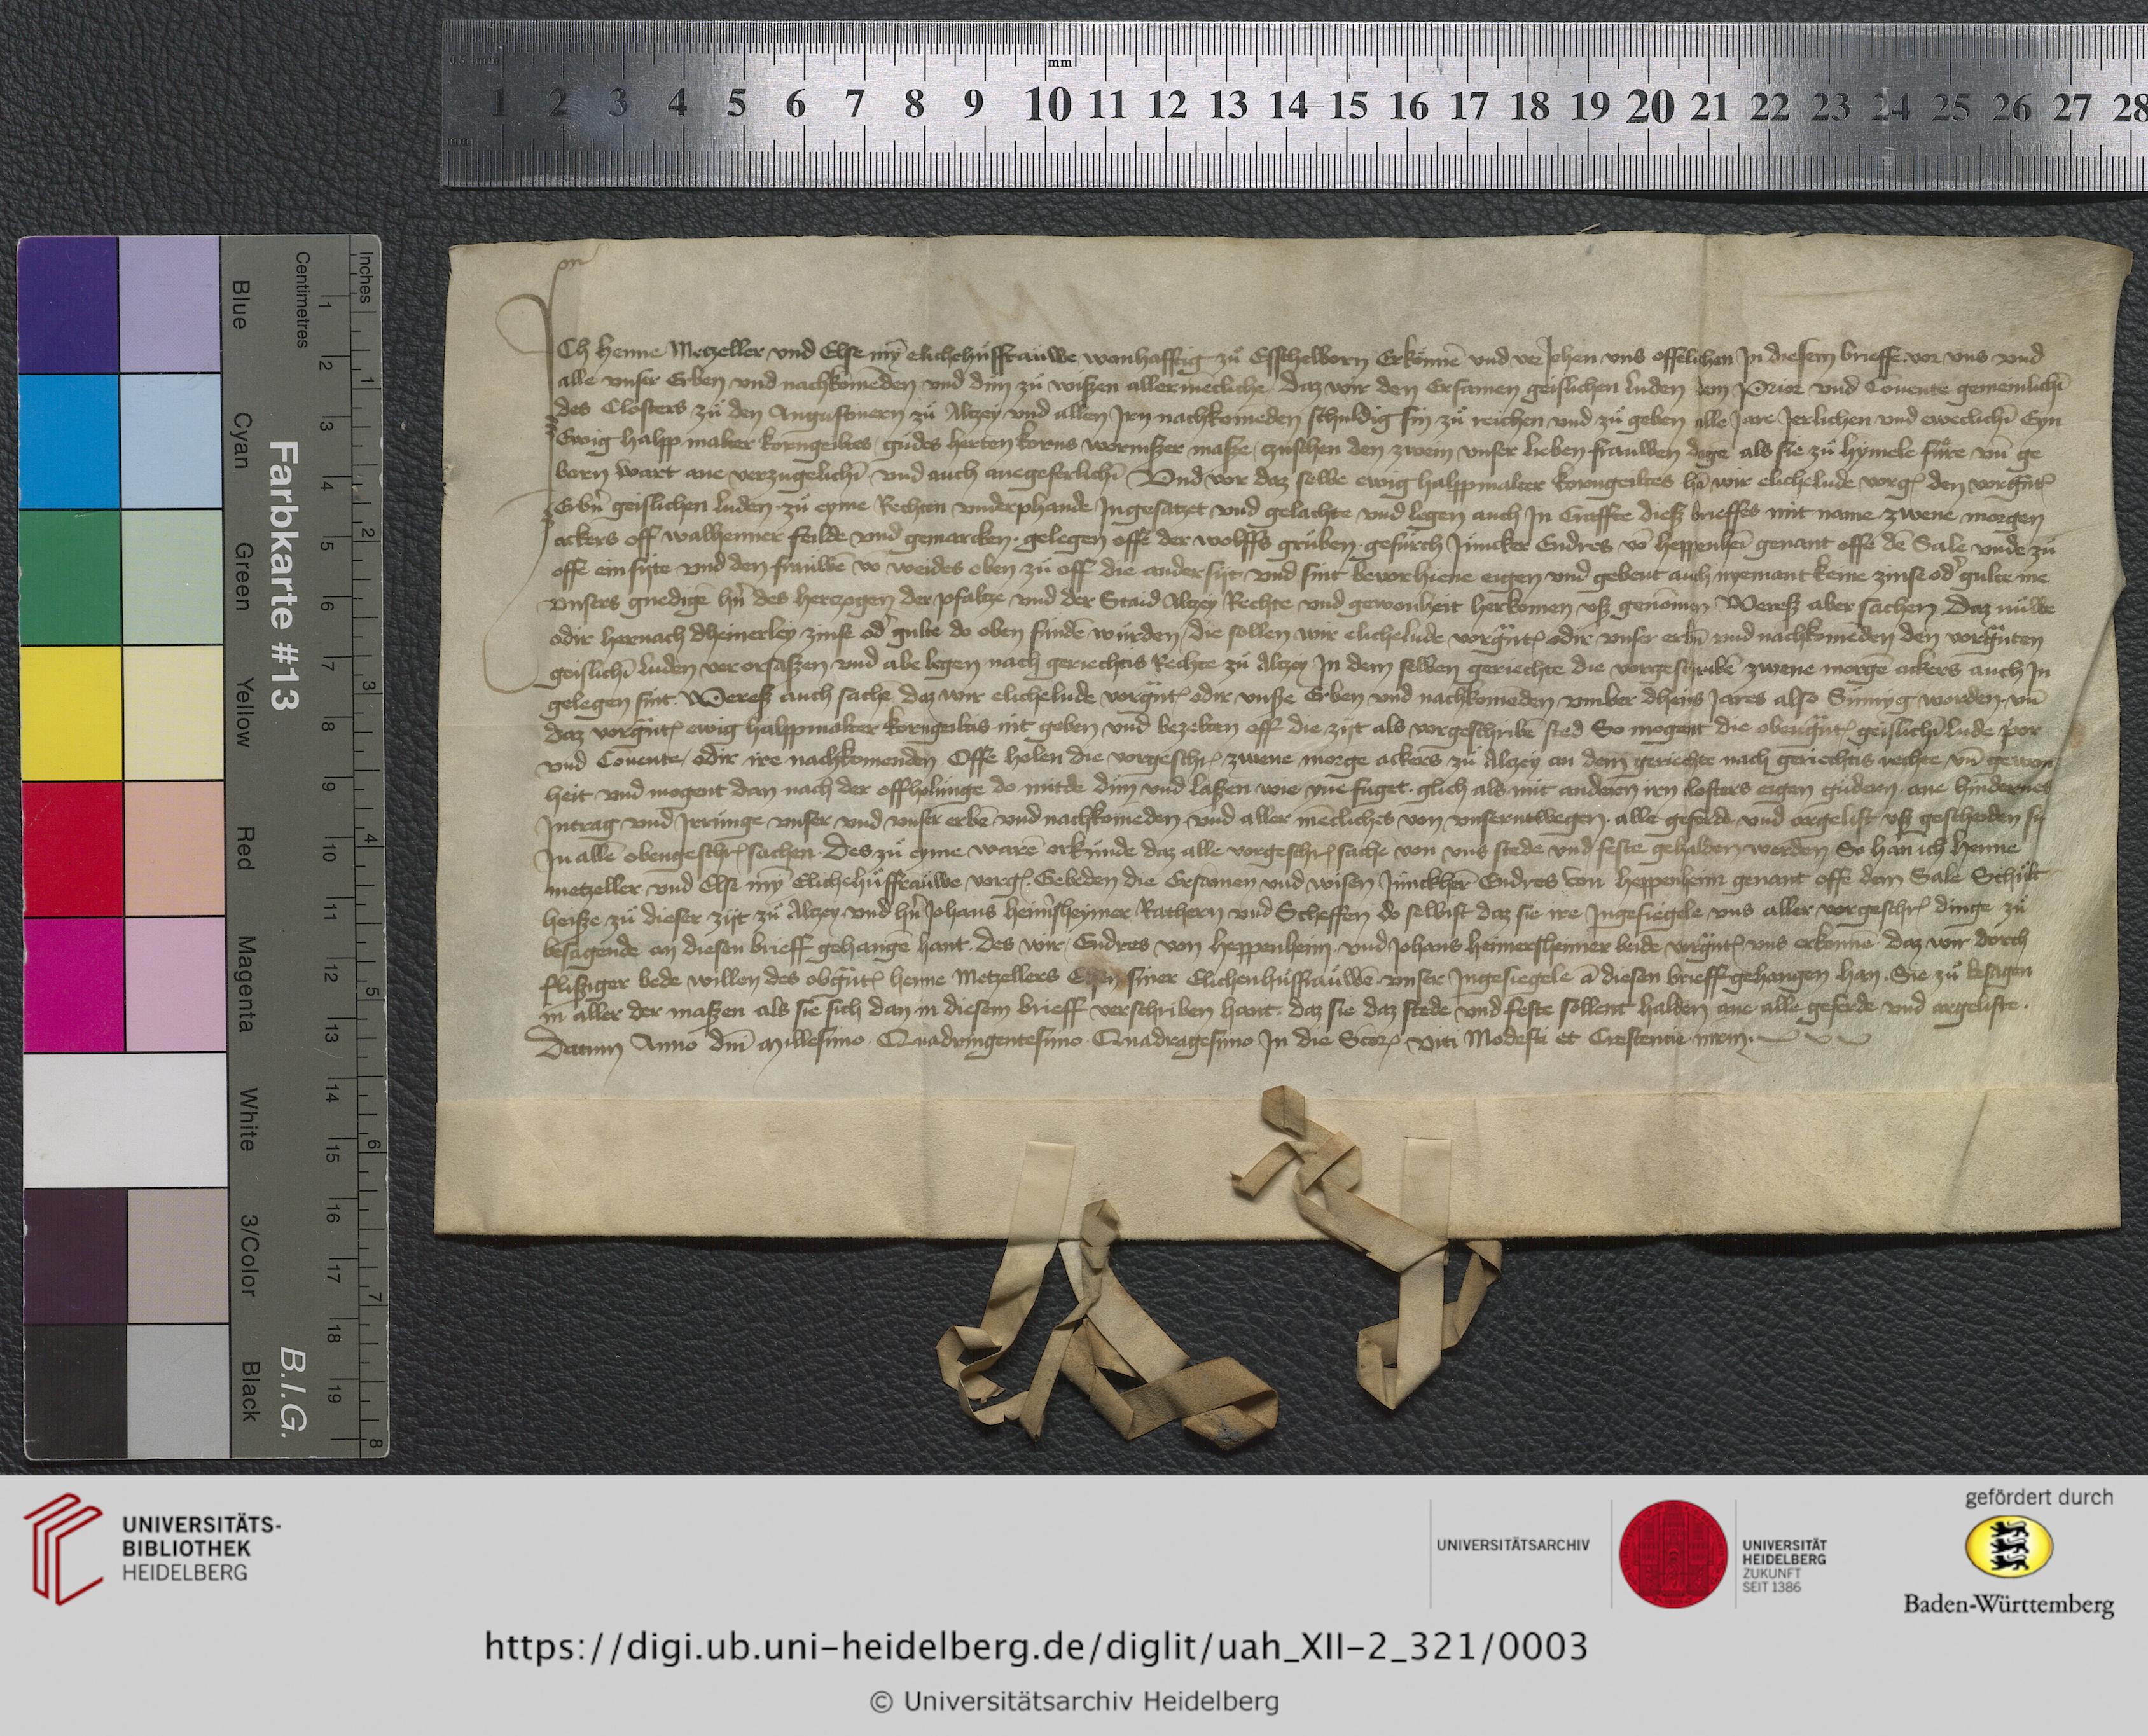 1 2 3 4 5 6 7 8 9 10 11 12 13 14 15 16 17 18 19 20 21 22 23 24 25 26 27 28
mm
Ich Henne Metzeller und Else mÿ elichehuͦsffrauwe wonhafftig zuͦ Esschelborn Erkoͤnnē und ver Jehen uns offelichen In diesem brieffe vor uns und
alle unser Erben und nachkomēden und duͦn zuͦ wißen allermēcliche Daz wir den Ersamen geislichen luden dem Prior und Covente gemeinlichē
des Closters zuͦ den Augustinern zuͦ Altzey und allen Irn nachkomeden schuldig sin zuͦ reichen und zuͦ geben alle Jare Jerlichen und eweclichē Eyn
Ewig halpp malter korngeiltes gudes herten korns wormszer maße zuschen den zwein unser lieben frauwen dage als sie zuͦ hymele fuͦre uñ ge
born wart ane verzugelichē und auch anegeferlichē Und vor daz selbe ewig halppmalter korngeiltes hā wir elichelude vorg den vorgñt
Erbn geislichen luden zuͦ eyme Rechten underphande Ingesatzet und gelachte und legen auch In Craffte dieß brieffes mit name zwene morgen
ackers off walheimer feilde und gemarcken gelegen offe der wolffs gruben gefurch Juncker Endres vō heppenheī genant offe dē Sale unde zuͦ
offe ein syte und den frauwē vō weides oben zuͦ off die ander syt und sint bevorhiene eigen und gebent auch nyemant keine zinse od gulte me
unsers gnedigē hñ des herczogen der pfaltze und der Staid Altzey Rechte und gewonheit herkomen uß genomen Wereß aber sachen Daz nuwe
odir hernach dheinerley zinse od gulte do oben fundē wurden die sollen wir elichelude vorgñt odir unser erbñ und nachkomēden den vorgñten
geislichē luden verorsaßen und abe legen nach geriechtis Rechte zuͦ Altzey In dem selben geriechte die vorgeschribē zwene morgē ackers auch In
gelegen sint Wereß auch sachē daz wir elichelude vorgñt odir unße Erben und nachkomeden umber dheins Jares also Sumyg worden uñ
daz vorgñt ewig halppmalter korngeiltis nit geben und bezelten off die zyt als vorgeschribē sted So mogent die obengñt geislichē lude por
und Covente odir ire nachkomenden Offe holen die vorgeschr zwene morge ackers zuͦ Altzey an dem geriechte nach geriechtis rechte uñ gewon
heit und mogent dan nach der offholunge do mitde duͦn und laßen wie yne fuget glich als mit anderen irn closters eigen gudern ane hindernes
Intrag und Irrunge unser und unser erbē und nachkomeden und aller mēcliches von unserntwegen alle geferde und orgelist uß gescheiden sy
In allē obengeschr sachen Des zuͦ eyme warē orkunde daz alle vorgeschr sache von uns stede und feste gehalden werden So han ich Henne
metzeller und Else mÿ Elichehuͦsffrauwe vorg Gebeden die Ersamen und wisen Junckher Endres von heppenheim genant offe dem Sale Schult
heiße zuͦ dieser zijt zuͦ Altzey und hñ Johans heimsheymer Rathern und Scheffen do selbist daz sie ire Ingesiegele uns aller vorgeschr dinge zuͦ
besagende an diesen brieff gehangē hant Des wir Endres von heppenheim und Johans heimersheimer beide vorgñt uns erkennē daz wir dorch
flißiger bede willen des obgñt henne Metzellers siner Elichenhuͦsffrauwē unser Ingesiegele ā diesen brieff gehangen han Sie zuͦ besagen
in aller der maßen als sie sich dan in diesem brieff verschriben hant daz sie daz stede und feste sollent halden ane alle geferde und argeliste
Datum Anno dñi millesimo Quadringentesimo Quadragesimo In die Sctor Viti Modesti et Crescencie mrm
Farbkarte #13
B.I.G.
Centimetres
Inches
Blue
Cyan
Green
Yellow
Red
Magenta
White
3/Color
Black
1 2 3 4 5 6 7 8 9 10 11 12 13 14 15 16 17 18 19
1 2 3 4 5 6 7 8
UNIVERSITÄTS-
BIBLIOTHEK
HEIDELBERG
UNIVERSITÄTSARCHIV
UNIVERSITÄT
HEIDELBERG
ZUKUNFT
SEIT 1386
gefördert durch
Baden-Württemberg
https://digi.ub.uni-heidelberg.de/diglit/uah_XII-2_321/0003
© Universitätsarchiv Heidelberg